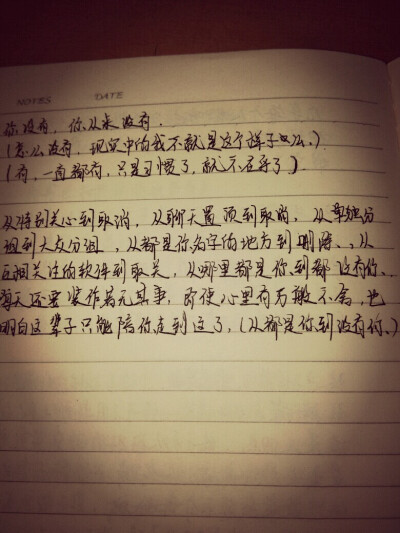 NOTES DATE
你没有，你从来没有．
（怎么没有，现实中的我不就是这个样子么。）
（有，一直都有，只是习惯了，就不在乎了）．
从特别关心到取消，从聊天置顶到取消，从单独分
组到大众分组，从都是你名字的地方到删除、从
互相关注的软件到取关，从哪里都是你、到都没有你、
每天还要装作若无其事，即使心里有万般不舍，也
明白这辈子只能陪你走到这了，（从都是你、到没有你、）